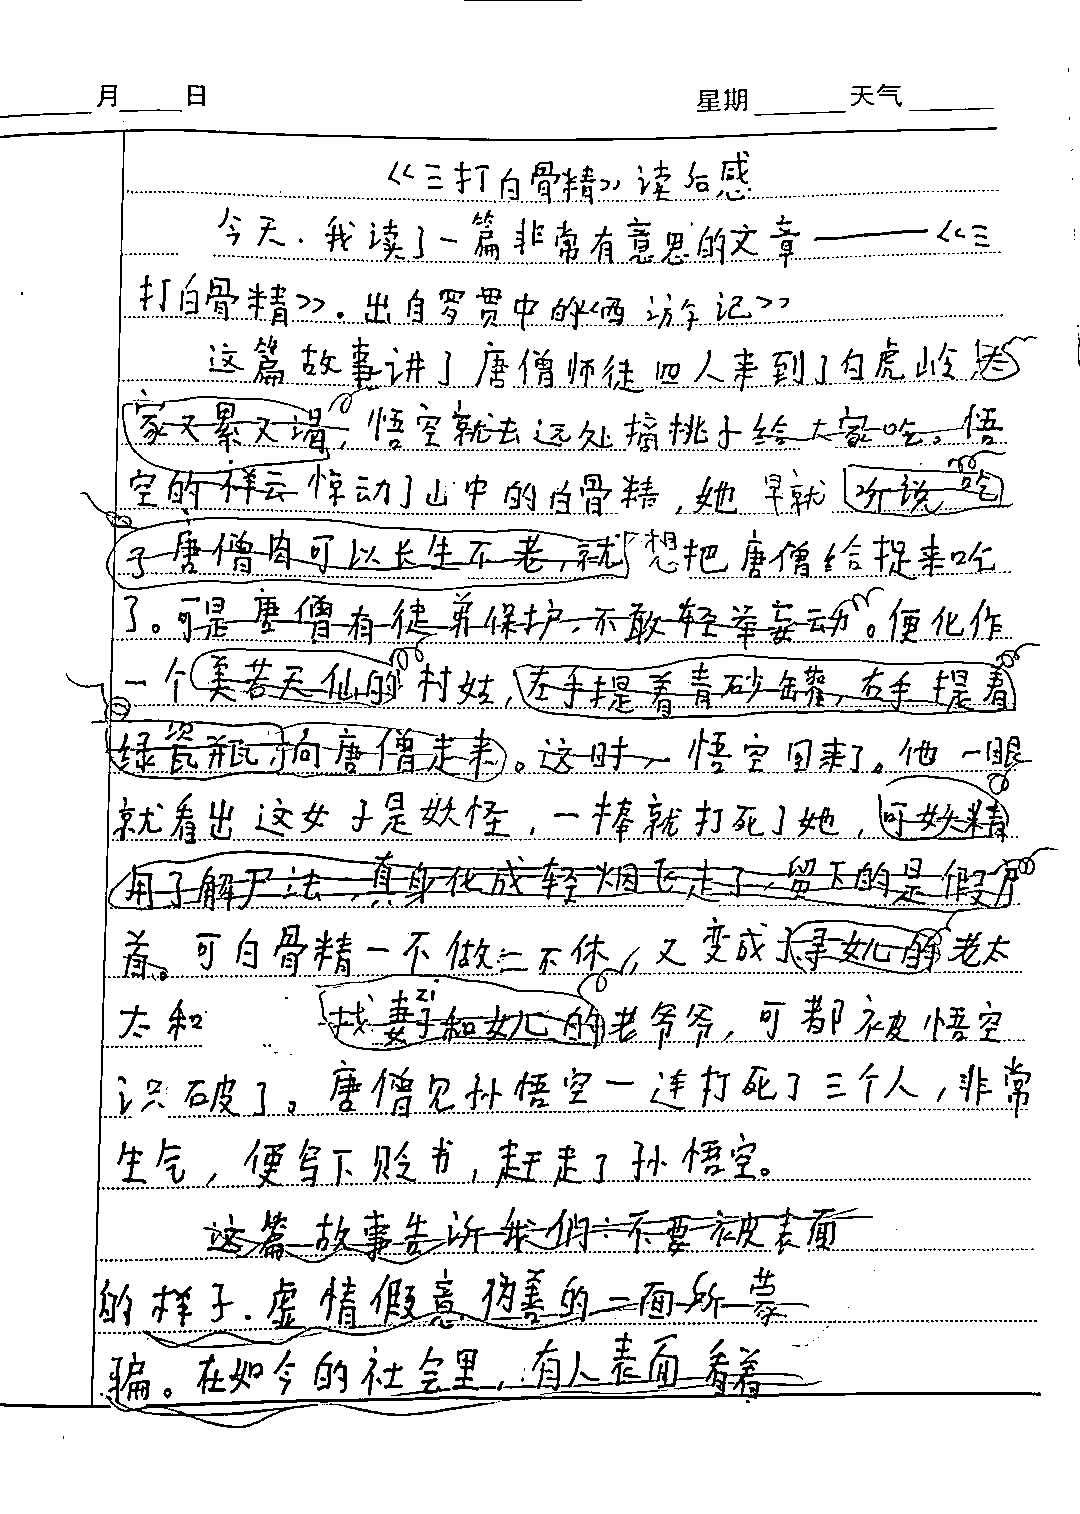 月 日 星期 天气
《三打白骨精》读后感
今天.我读了一篇非常有意思的文章——《三
打白骨精》.出自罗贯中的《西游记》
这篇故事讲了唐僧师徒四人来到了白虎岭大
家又累又渴,悟空就去远处摘桃子给大家吃。悟
空的祥云惊动了山中的白骨精,她早就听说,吃
了唐僧肉可以长生不老,就想把唐僧给捉来吃
了。可是唐僧有徒弟保护.不敢轻举妄动。便化作
一个美若天仙的村姑,左手提着青砂罐,右手提着
绿瓷瓶,向唐僧走来。这时,悟空回来了。他一眼
就看出这女子是妖怪,一棒就打死了她,可妖精
用了解尸法,真身化成轻烟飞走了,留下的是假尸
首。可白骨精一不做二不休,又变成了寻女儿的老太
太和 找妻子和女儿的老爷爷,可都被悟空
zi
识破了。唐僧见孙悟空一连打死了三个人,非常
生气,便写下贬书,赶走了孙悟空。
这篇故事告诉我们:不要被表面
的样子.虚情假意,伪善的一面所蒙
骗。在如今的社会里,有人表面看着